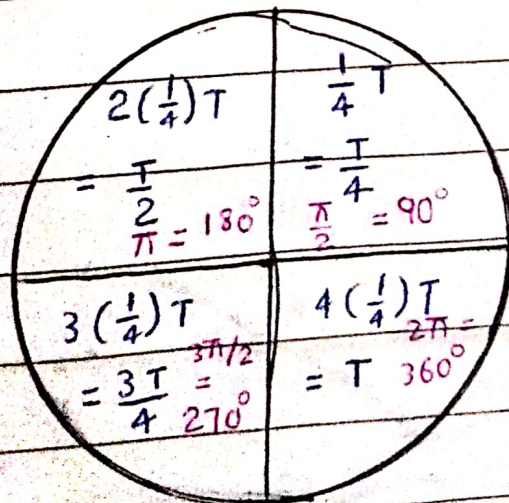 2(1/4)T
= T/2
π = 180°
1/4 T
= T/4
π/2 = 90°
3(1/4)T
= 3T/4
3π/2 =
270°
4(1/4)T
= T
2π =
360°